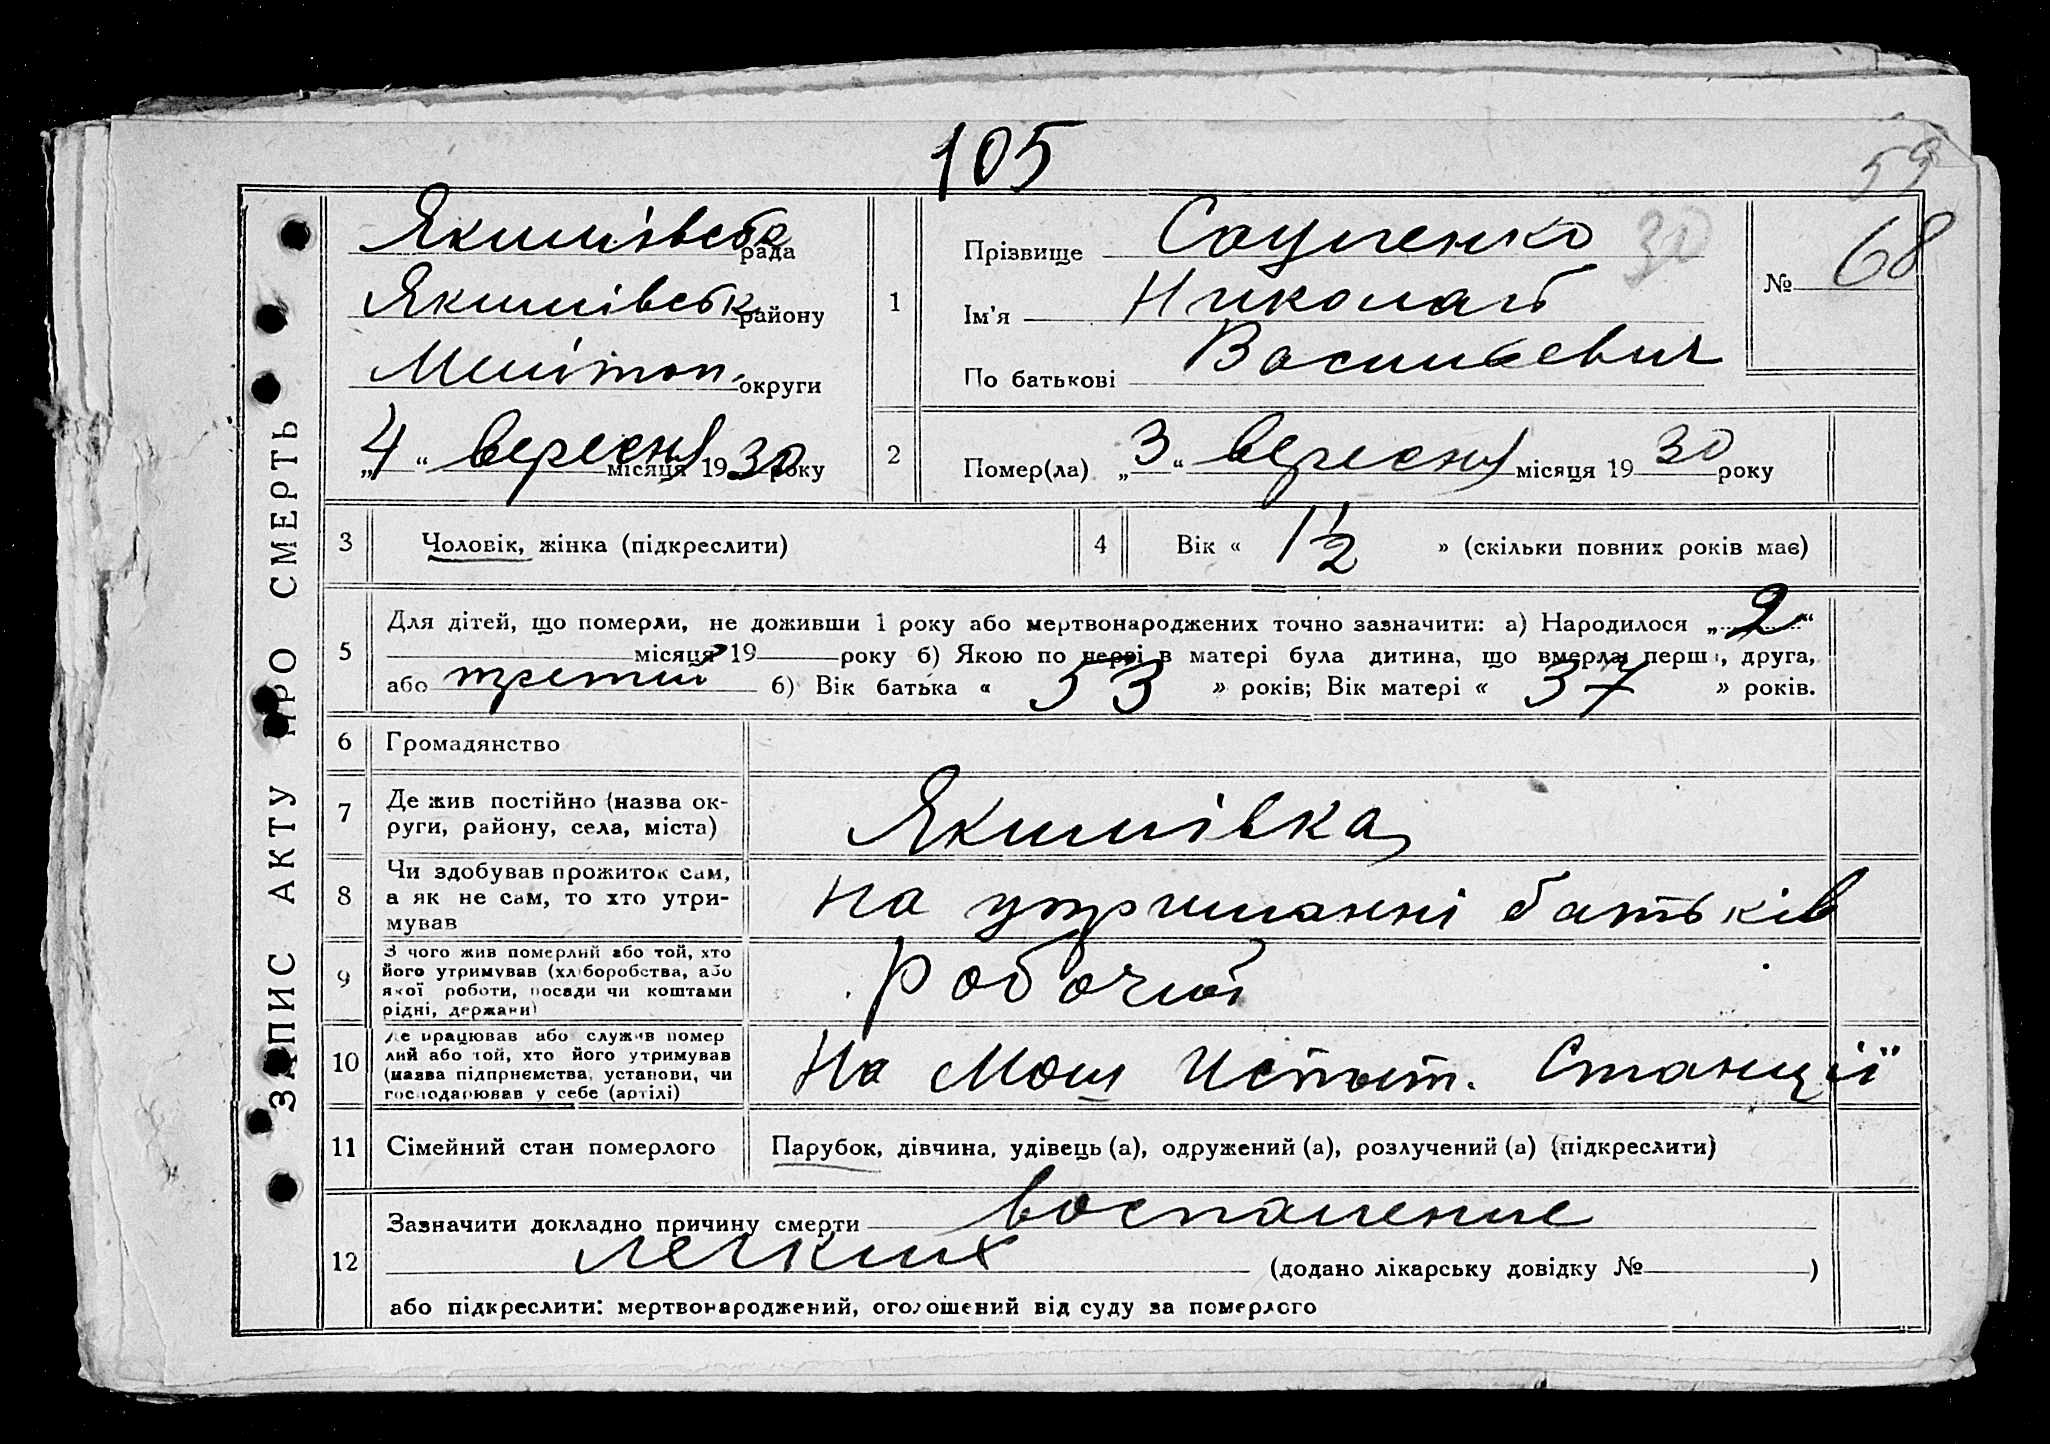 105
59
ЗАПИС АКТУ ПРО СМЕРТЬ
Якимівська рада
Якимівськ району
Мелітоп. округи
„4“ вересня місяця 1930 року
1
Прізвище
30
Ім'я Николай
По батькові Васильевич
№ 68
2
Помер(ла) „3“ вересня місяця 1930 року
3
Чоловік, жінка (підкреслити)
4
Вік « 1½ » (скільки повних років має)
5
Для дітей, що померли, не доживши 1 року або мертвонароджених точно зазначити: а) Народилося „2“
місяця 19 року б) Якою по черзі в матері була дитина, що вмерла: перша, друга,
або третий б) Вік батька « 53 » років; Вік матері « 37 » років.
6
Громадянство
7
Де жив постійно (назва ок-
руги, району, села, міста)
Якимівка
8
Чи здобував прожиток сам,
а як не сам, то хто утри-
мував
на утриманні батьків
9
З чого жив померлий або той, хто
його утримував (хліборобства, або
якої роботи, посади чи коштами
рідні, держави)
Робочий
10
Де працював або служив помер
лий або той, хто його утримував
(назва підприємства, установи, чи
господарював у себе (артілі)
На Маш Испыт. Станції
11
Сімейний стан померлого
Парубок, дівчина, удівець (а), одружений (а), розлучений (а) (підкреслити)
12
Зазначити докладно причину смерти воспаление
легких (додано лікарську довідку № )
або підкреслити: мертвонароджений, оголошений від суду за померлого